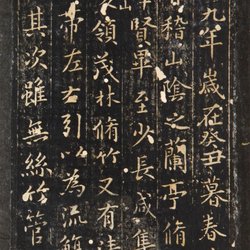 九年歲在癸丑暮春
稽山陰之蘭亭脩
賢畢至少長咸集
山
領茂林脩竹又有清
帶左右引以為流觴
其次雖無絲竹管